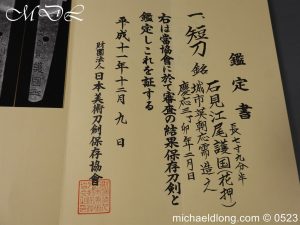 鑑定書
一、短刀 銘 石見江尾護国(花押) 長七寸九分半
慶応三丁卯年二月日
右は当協會に於て審査の結果保存刀剣と
鑑定しこれを証する
平成十二年十二月九日
財團法人 日本美術刀剣保存協會
MDL
michaeldlong.com © 0523